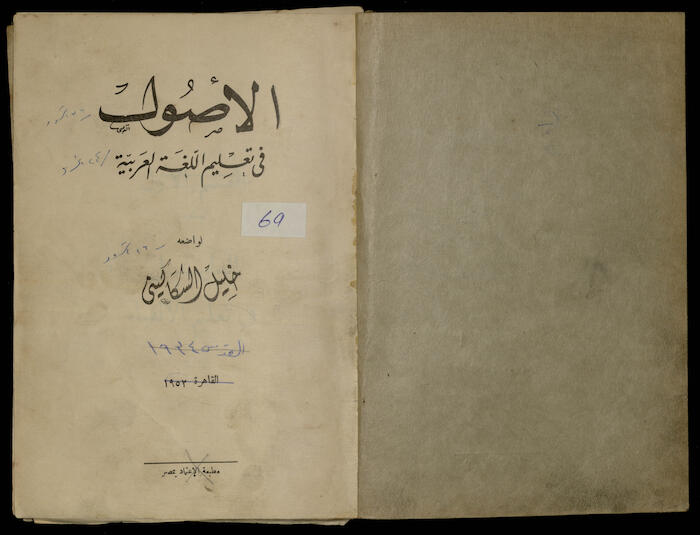 الأصول
في تعليم اللغة العربية
69
لواضعه
خليل السكاكيني
القدس ١٩٣٤
القاهرة ١٩٥٢
مطبعة الاعتماد بمصر